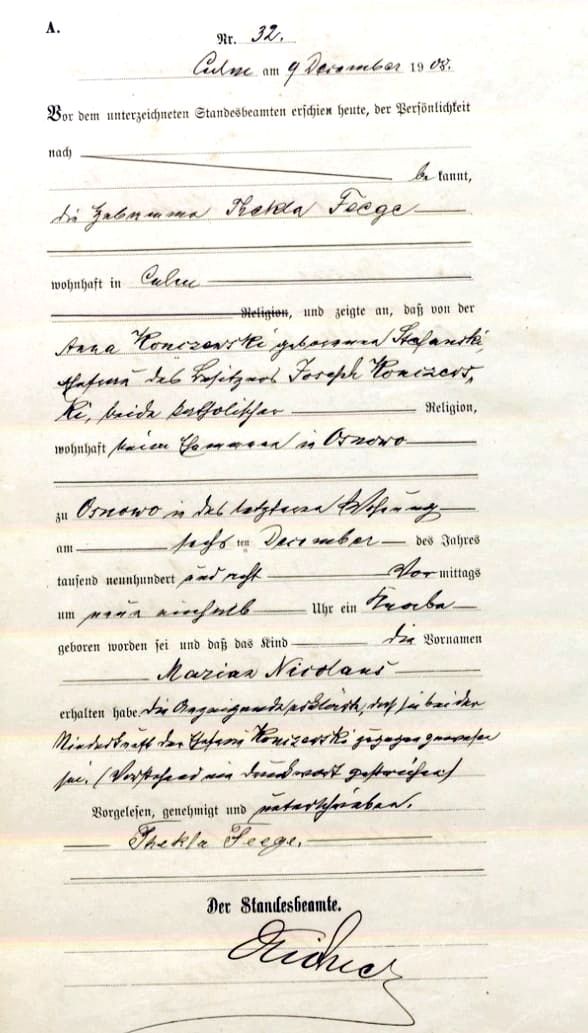 A.
Nr. 32.
Culm am 9 Dezember 1908.
Vor dem unterzeichneten Standesbeamten erschien heute, der Persönlichkeit
nach
be kannt,
die Hebamme Thekla Feege
wohnhaft in Culm
Religion, und zeigte an, daß von der
Anna Konczewski geborenen Stefanski,
Ehefrau des Besitzers Joseph Konczews-
ki, beide katholischer Religion,
wohnhaft beim Ehemann in Osnowo
zu Osnowo in des letzteren Wohnung
am sechs ten Dezember des Jahres
tausend neunhundert und acht Vor mittags
um neun einhalb Uhr ein Knabe
geboren worden sei und daß das Kind die Vornamen
Marian Nicolaus
erhalten habe. Die Anzeigende erklärte, daß sie bei der
Niederkunft der Ehefrau Konczewski zugegen gewesen
sei. (Vorstehend ein Druckwort gestrichen)
Vorgelesen, genehmigt und unterschrieben.
Thekla Feege.
Der Standesbeamte.